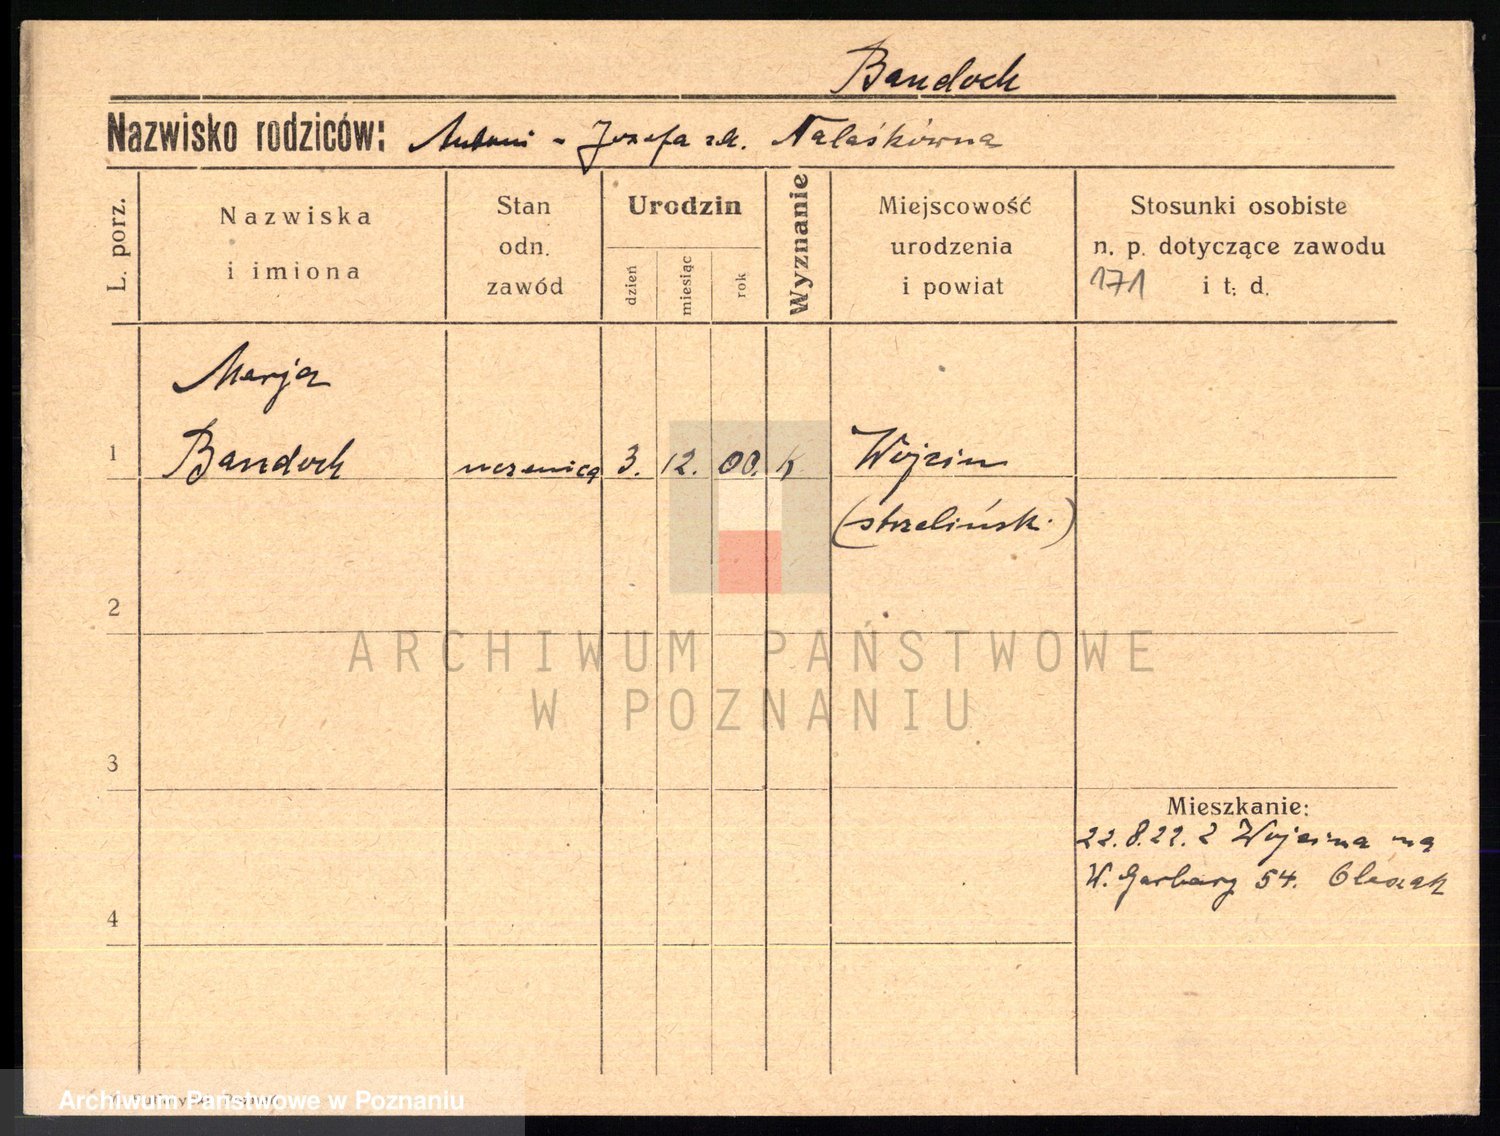 Bandoch
Nazwisko rodziców: Antoni - Jozefa zd. Nalaśkówna
L. porz.
Nazwiska
i imiona
Stan
odn.
zawód
Urodzin
dzień
miesiąc
rok
Wyznanie
Miejscowość
urodzenia
i powiat
Stosunki osobiste
n. p. dotyczące zawodu
171 i t. d.
Marja
1 Bandoch uczenica 3. 12. 00. k. Wójcin
(strzelińsk.)
2
ARCHIWUM PAŃSTWOWE
W POZNANIU
3
Mieszkanie:
22.8.22. z Wójcina na
W. Garbary 54. Oleszak
4
Archiwum Państwowe w Poznaniu